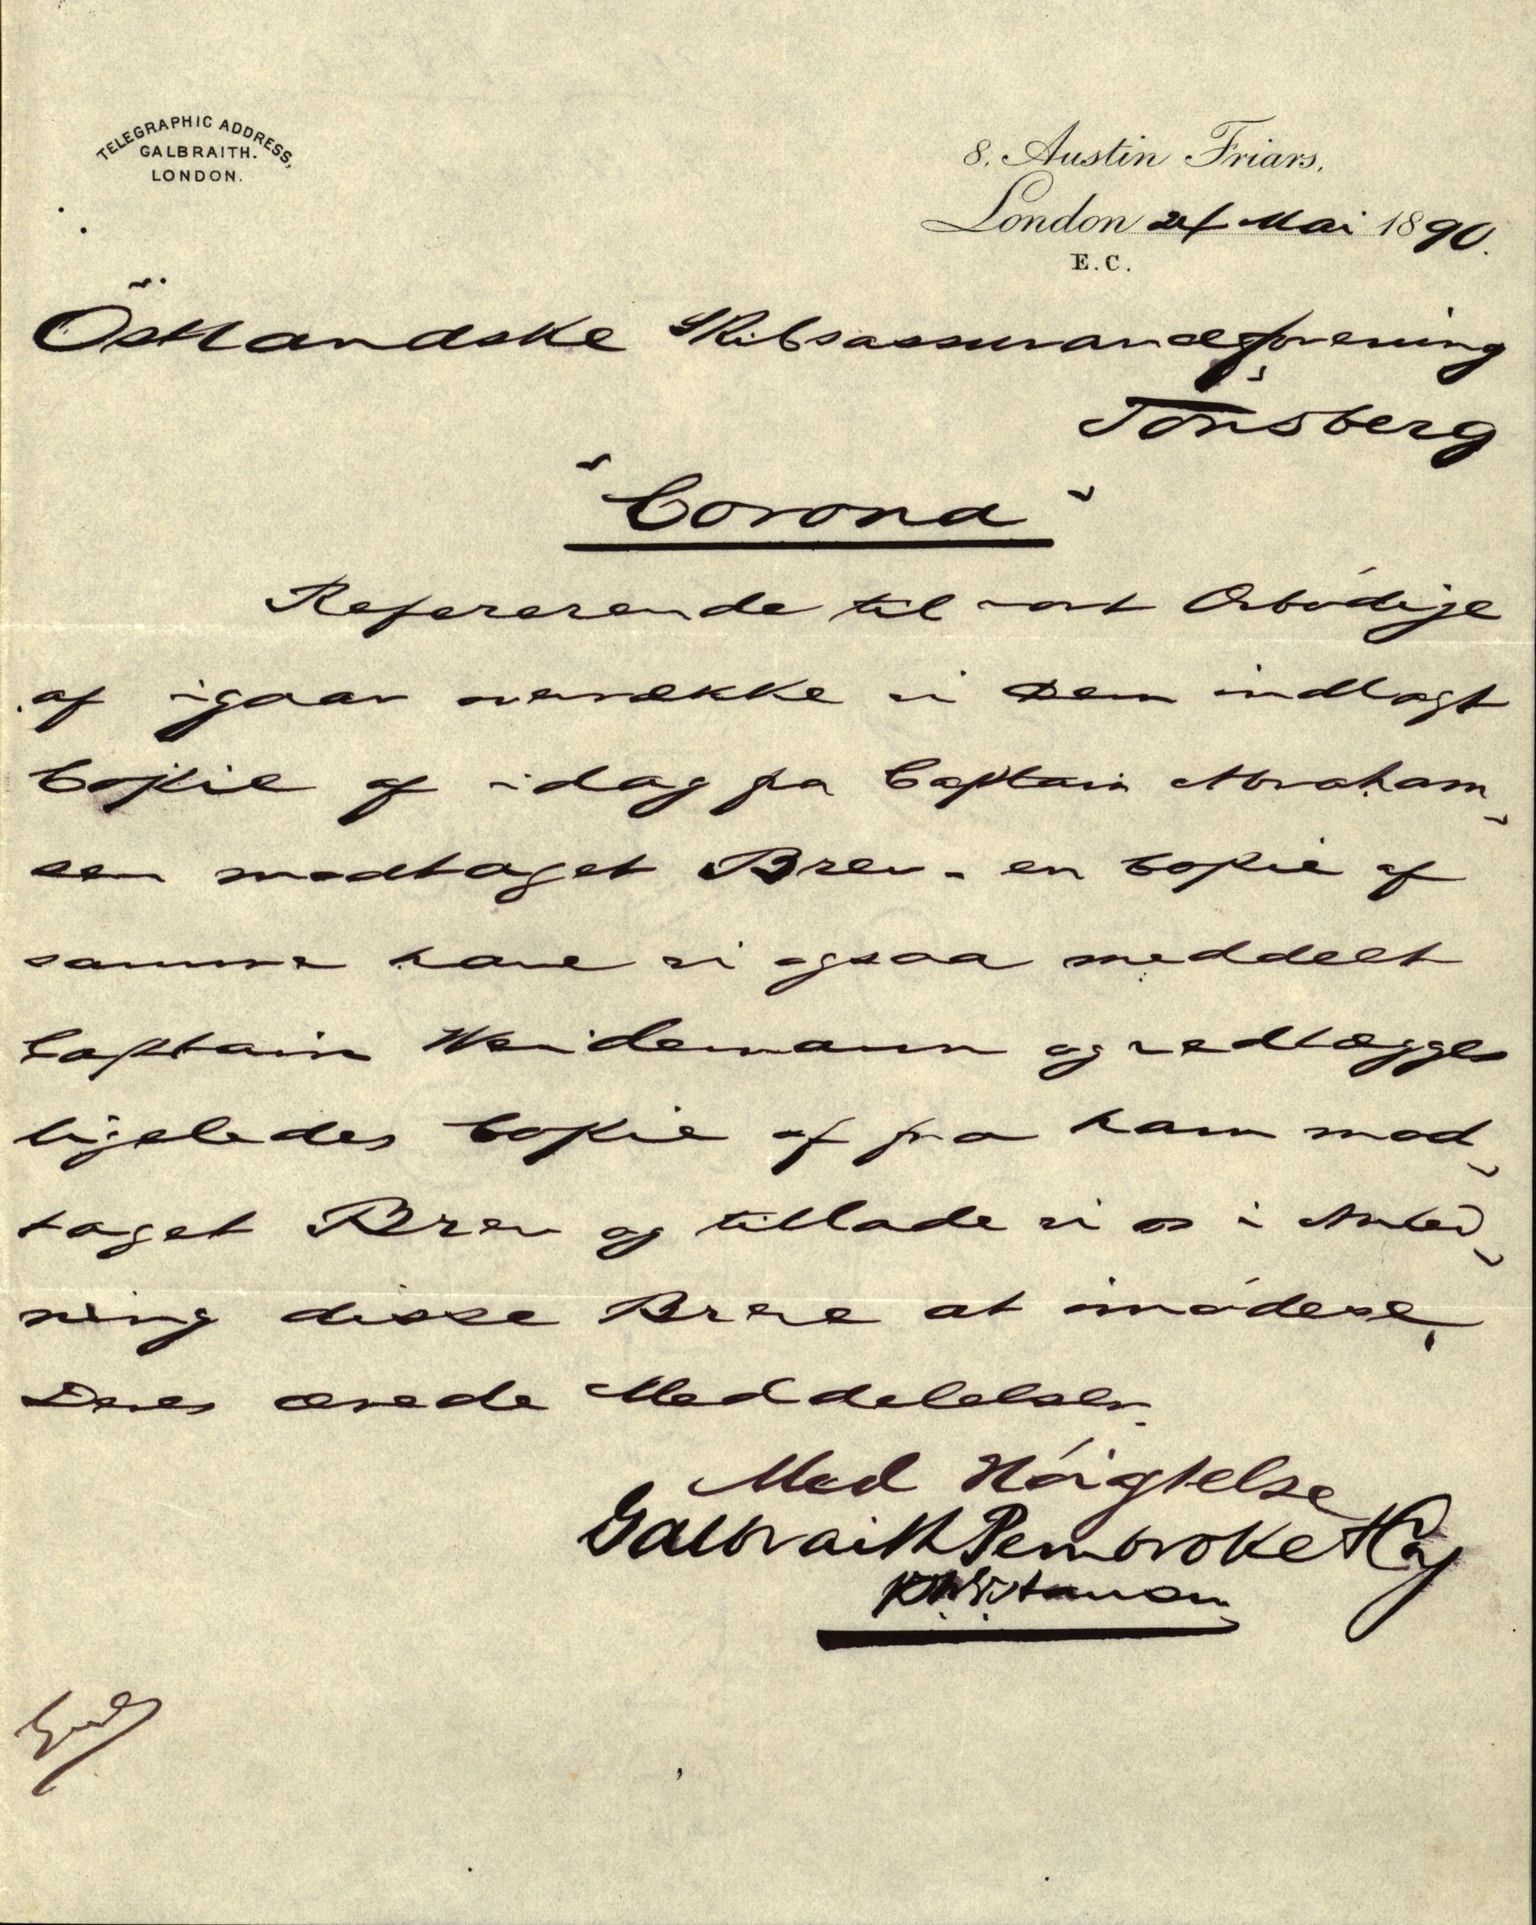 TELEGRAPHIC ADDRESS,
GALBRAITH.
LONDON.
8. Austin Friars,
London 24 Mai 1890.
E.C.
Östlandske Skibsassuranceforening
Tönsberg
"Corona"
Refererende til vort Ærbödige
af igaar overrække vi Dem indlagt
Copie af idag fra Captain Abraham-
sen modtaget Brev - en Copie af
samme have vi ogsaa meddelt
Captain Weidemann og vedlægges
ligeledes Copie af fra ham mod-
taget Brev og tillade vi os i Anled-
ning disse Breve at imödese
Deres ærede Meddelelser.
Med Höiagtelse
Galbraith Pembroke & Co